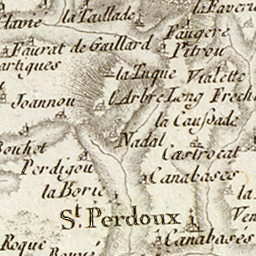 la Taillade
la Faverie
Clavre
Faugere
Faurat de Gaillard
Petrou
artigues
la Tuque
Vialette
Joannou
l'Arbre Long
Frech
la Caussade
Bouchet
Nadal
Castrocat
Perdigou
Canabases
la Borie
St. Perdoux
Ven
Roque
Rouyé
Canabases